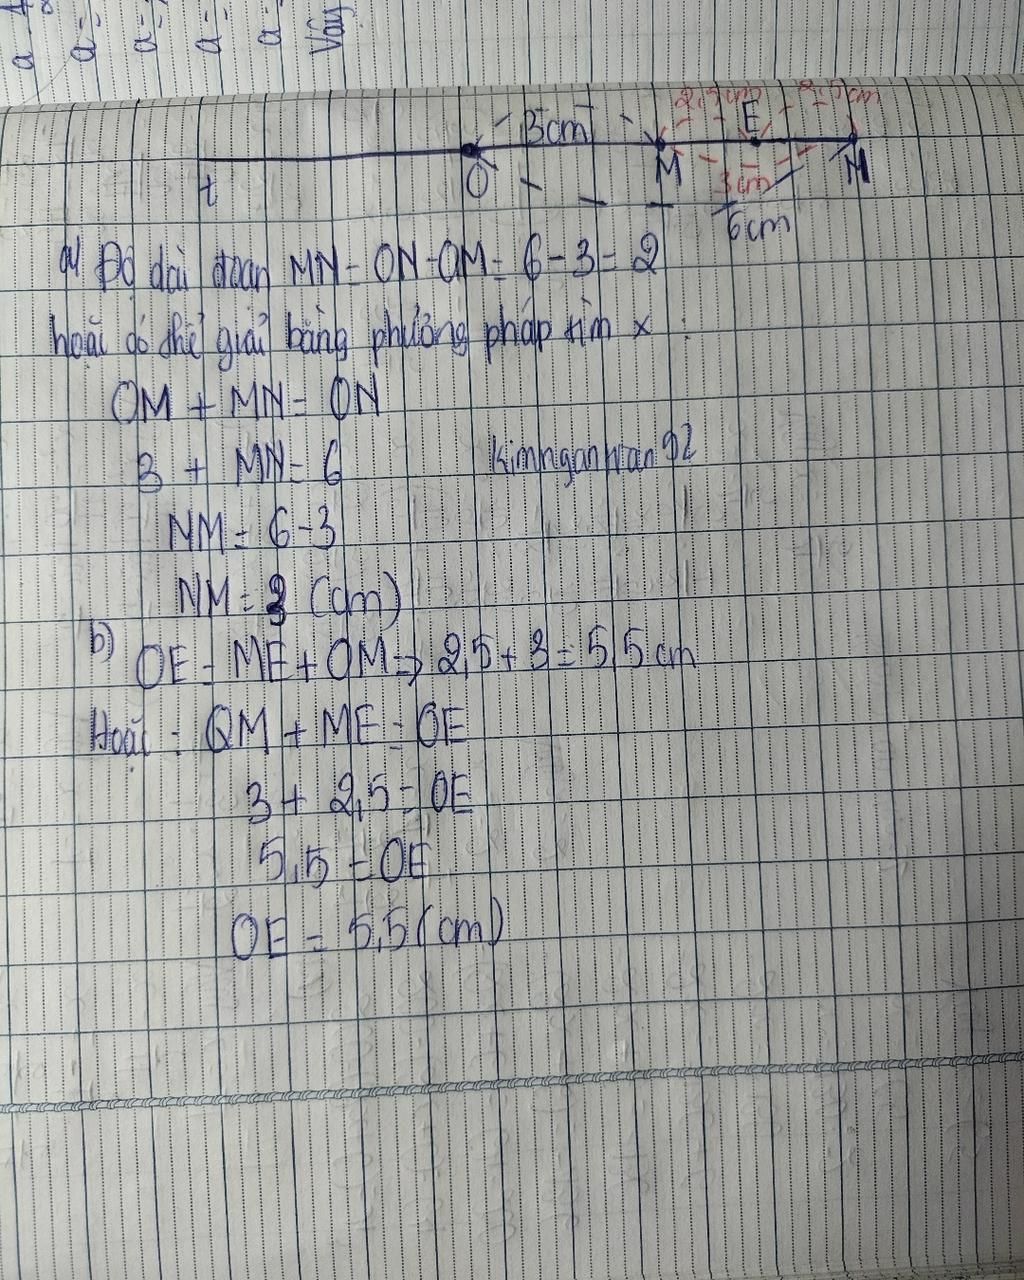 a -
a -
a -
a -
a
Vậy
3cm
2,5cm
E
2,5cm
t
O
M
3cm
N
6cm
a/ Độ dài đoạn MN = ON - OM = 6 - 3 = 2
hoặc có thể giải bằng phương pháp tìm x :
OM + MN = ON
3 + MN = 6
kimnganwan92
NM = 6 - 3
NM = 3 (cm)
b)
OE = ME + OM => 2,5 + 3 = 5,5 cm
Hoặc : OM + ME = OE
3 + 2,5 = OE
5,5 = OE
OE = 5,5 (cm)